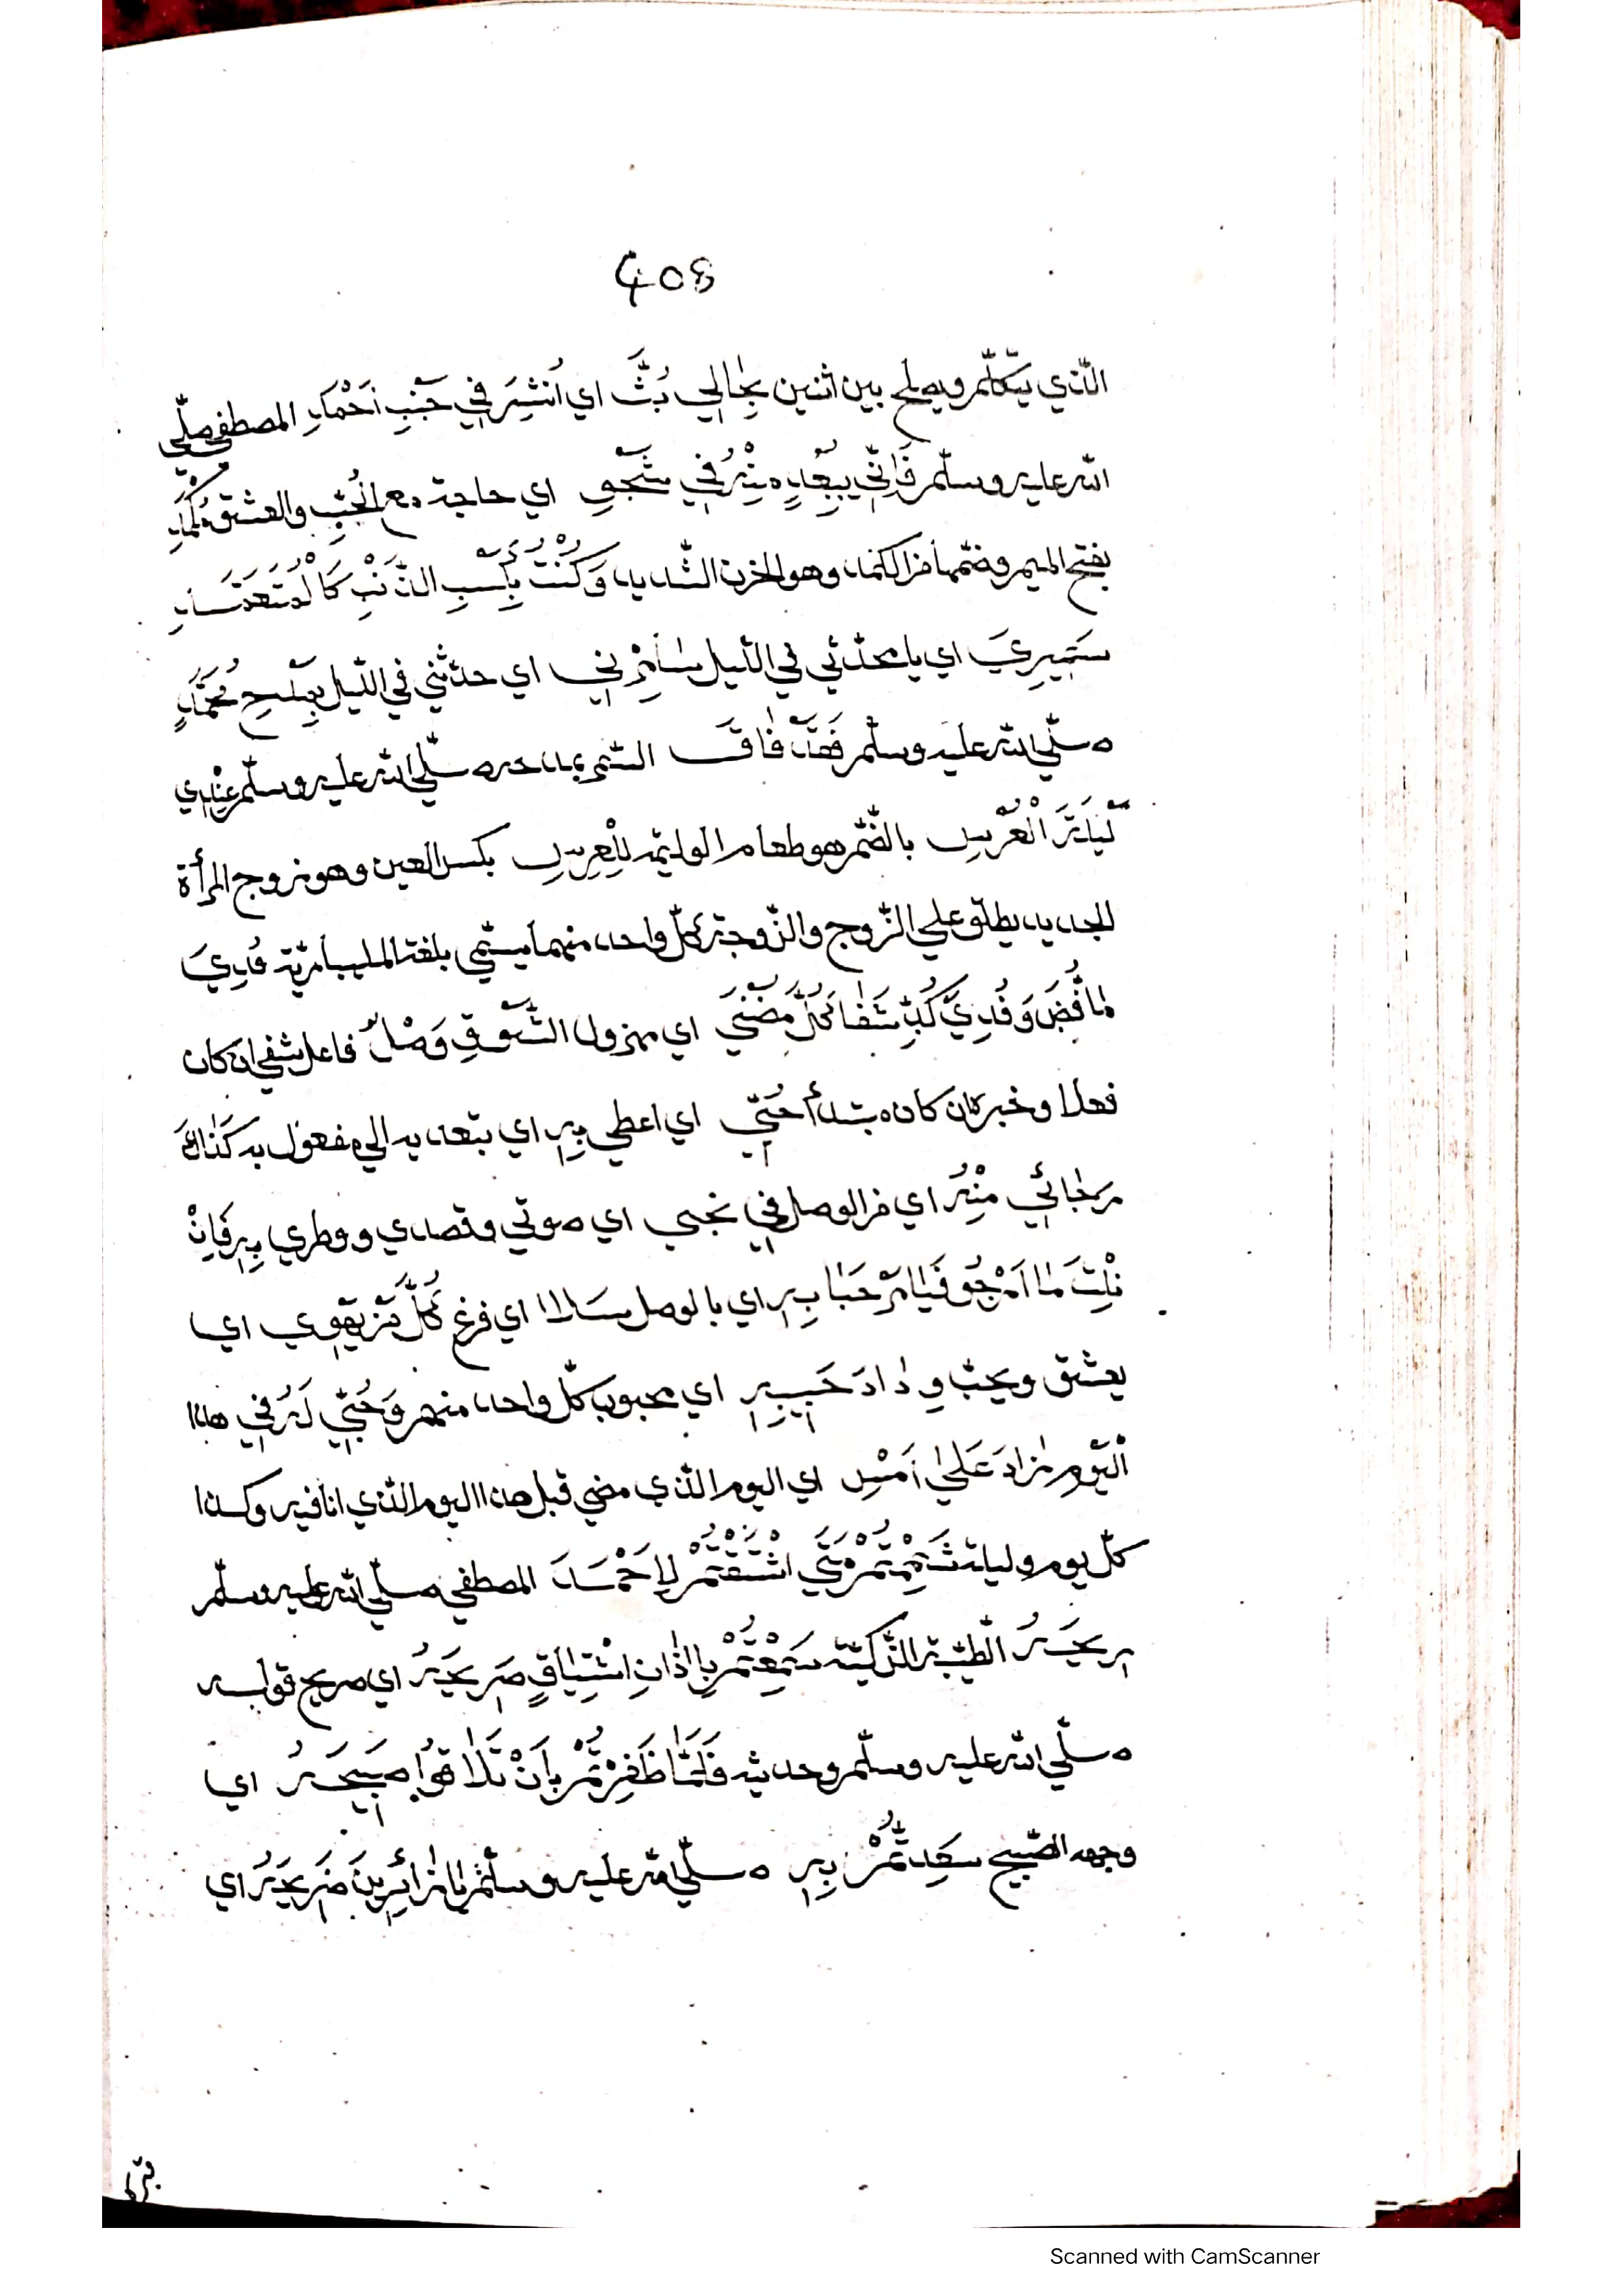 408
الّذي يتكلّم ويصلح بين اثنين بِحٰالِي بُثَّ اي اُنْشِرَ فِي حَنْبِ اَحْمَدِ المصطفي صلّي
الله عليه وسلّم فَاِنِّي بِبُعْدٍ مِنْهُ فِي شَجْوِ اي حاجة مع الحُبِّ والعشق مُكْمَدِ
بفتح الميم وضمّها من الكمد وهو الحزن الشّديد وَكُنْتُ بِكَسْبِ الذَّنْبِ كَالْمُتَعَمِّدِ
سَمِيرِيَ اي يا محدّثي في اللّيل سٰامِرْنِي اي حدّثني في اللّيل بِمَدْحِ مُحَمَّدٍ
صلّي الله عليه وسلّم فَقَدْ فٰاقَ التّمر بمدحه صلّي الله عليه وسلّم عِنْدِي
لَيْلَةَ الْعُرْسِ بالضّمّ هو طعام الوليمة لِلْعِرْسِ بكسر العين وهو زوج المرأة
الجديد يطلق علي الزّوج والزّوجة كلّ واحد منهما يسمّي بلغة المليبارية فُدِيَ
مٰا فُضَّ وَفُدِيَّ كُبِّ شَفٰا كُلَّ مُضْنَي اي مهزول الشَّوْقِ وَصْلٌ فاعل شفي ان كان
فعلا وخبر ان كان مبتدأ حُبِّي اي اعطي بِهِ اي بتعديه الي مفعول به كَذٰاكَ
رَجٰائِي مِنْهُ اي من الوصل فِي نحبي اي صوتي وقصدي ووطري بِهِ فَاِنْ
نِلْتَ مٰا اَرْجُو فَيٰا مَرْحَبًا بِهِ اي بالوصل سَلٰا اي فرغ كُلُّ مَنْ يَهْوِي اي
يعشق ويحبّ وِدٰادَ حَبِيبِهِ اي محبوب كلّ واحد منهم وَحُبِّي لَهُ فِي هٰذَا
الْيَوْمِ زٰادَ عَلَيٰ اَمْسِ اي اليوم الّذي مضي قبل هذا اليوم الّذي انا فيه وكذا
كلّ يوم وليلة شَمِمْتُمْ مَتَي اشْتَقْتُمْ لِاَحْمَدَ المصطفي صلّي الله عليه وسلّم
رِيحَهُ الطّيّبة الزّكيّة سَمِعْتُمْ بِاٰذٰانِ اشْتِيٰاقٍ صَرِيحَهُ اي صريح قوله
صلّي الله عليه وسلّم وحديثه فَلَمّٰا ظَفِرْتُمْ بِاَنْ تَلٰاقَوْا صَبِيحَهُ اي
وجهه الصّبيح سَعِدْتُمْ بِهِ صلّي الله عليه وسلّم يٰا زٰائِرِينَ ضَرِيحَهُ اي
Scanned with CamScanner